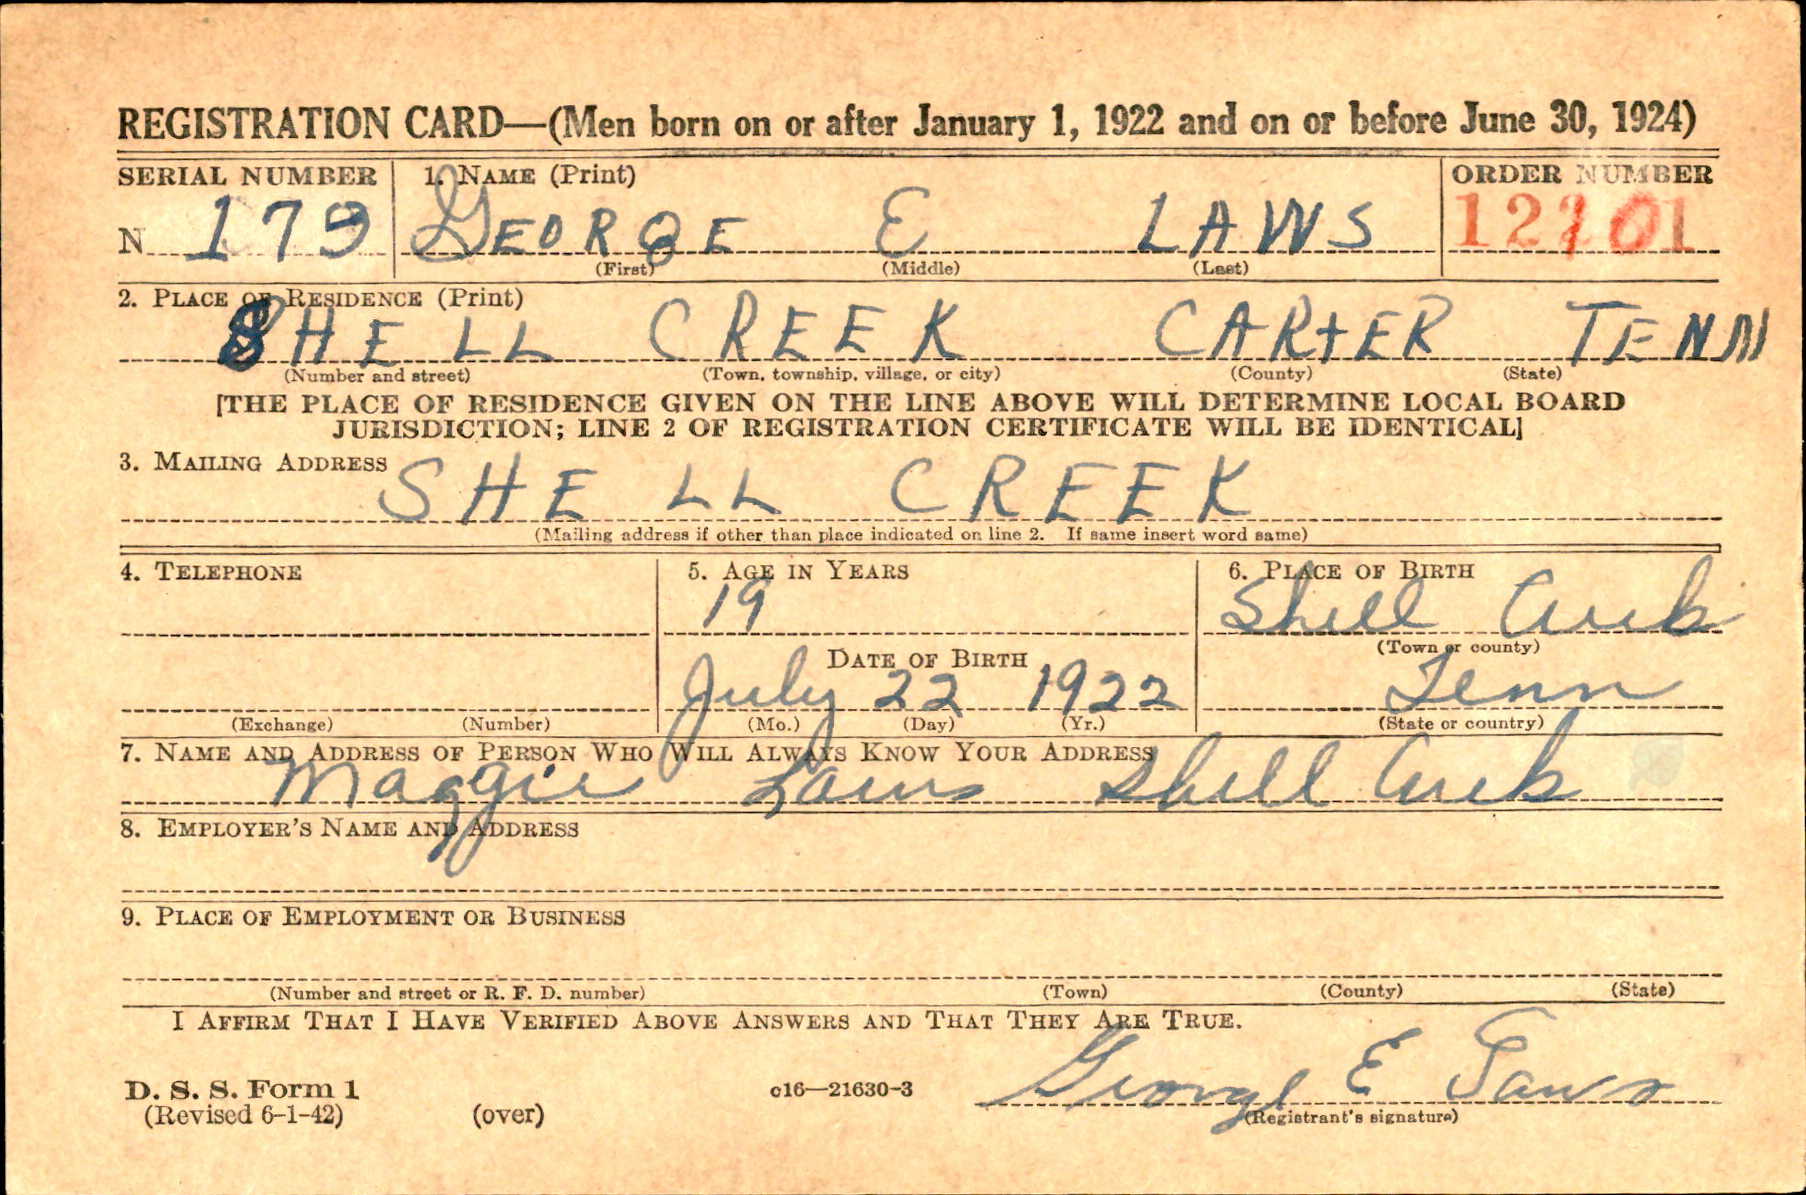 REGISTRATION CARD—(Men born on or after January 1, 1922 and on or before June 30, 1924)
SERIAL NUMBER 1. NAME (Print) ORDER NUMBER
N 179 GEORGE E LAWS
(First) (Middle) (Last)
2. PLACE OF RESIDENCE (Print)
SHELL CREEK CARTER TENN
(Number and street) (Town, township, village, or city) (County) (State)
[THE PLACE OF RESIDENCE GIVEN ON THE LINE ABOVE WILL DETERMINE LOCAL BOARD
JURISDICTION; LINE 2 OF REGISTRATION CERTIFICATE WILL BE IDENTICAL]
3. MAILING ADDRESS
SHELL CREEK
(Mailing address if other than place indicated on line 2. If same insert word same)
4. TELEPHONE 5. AGE IN YEARS 6. PLACE OF BIRTH
19 Shell Creek
(Town or county)
DATE OF BIRTH
July 22 1922 Tenn
(Exchange) (Number) (Mo.) (Day) (Yr.) (State or country)
7. NAME AND ADDRESS OF PERSON WHO WILL ALWAYS KNOW YOUR ADDRESS
Maggie Laws Shell Creek
8. EMPLOYER'S NAME AND ADDRESS
9. PLACE OF EMPLOYMENT OR BUSINESS
(Number and street or R. F. D. number) (Town) (County) (State)
I AFFIRM THAT I HAVE VERIFIED ABOVE ANSWERS AND THAT THEY ARE TRUE.
George E Laws
D. S. S. Form 1 c16—21630-3
(Revised 6-1-42) (over) (Registrant's signature)